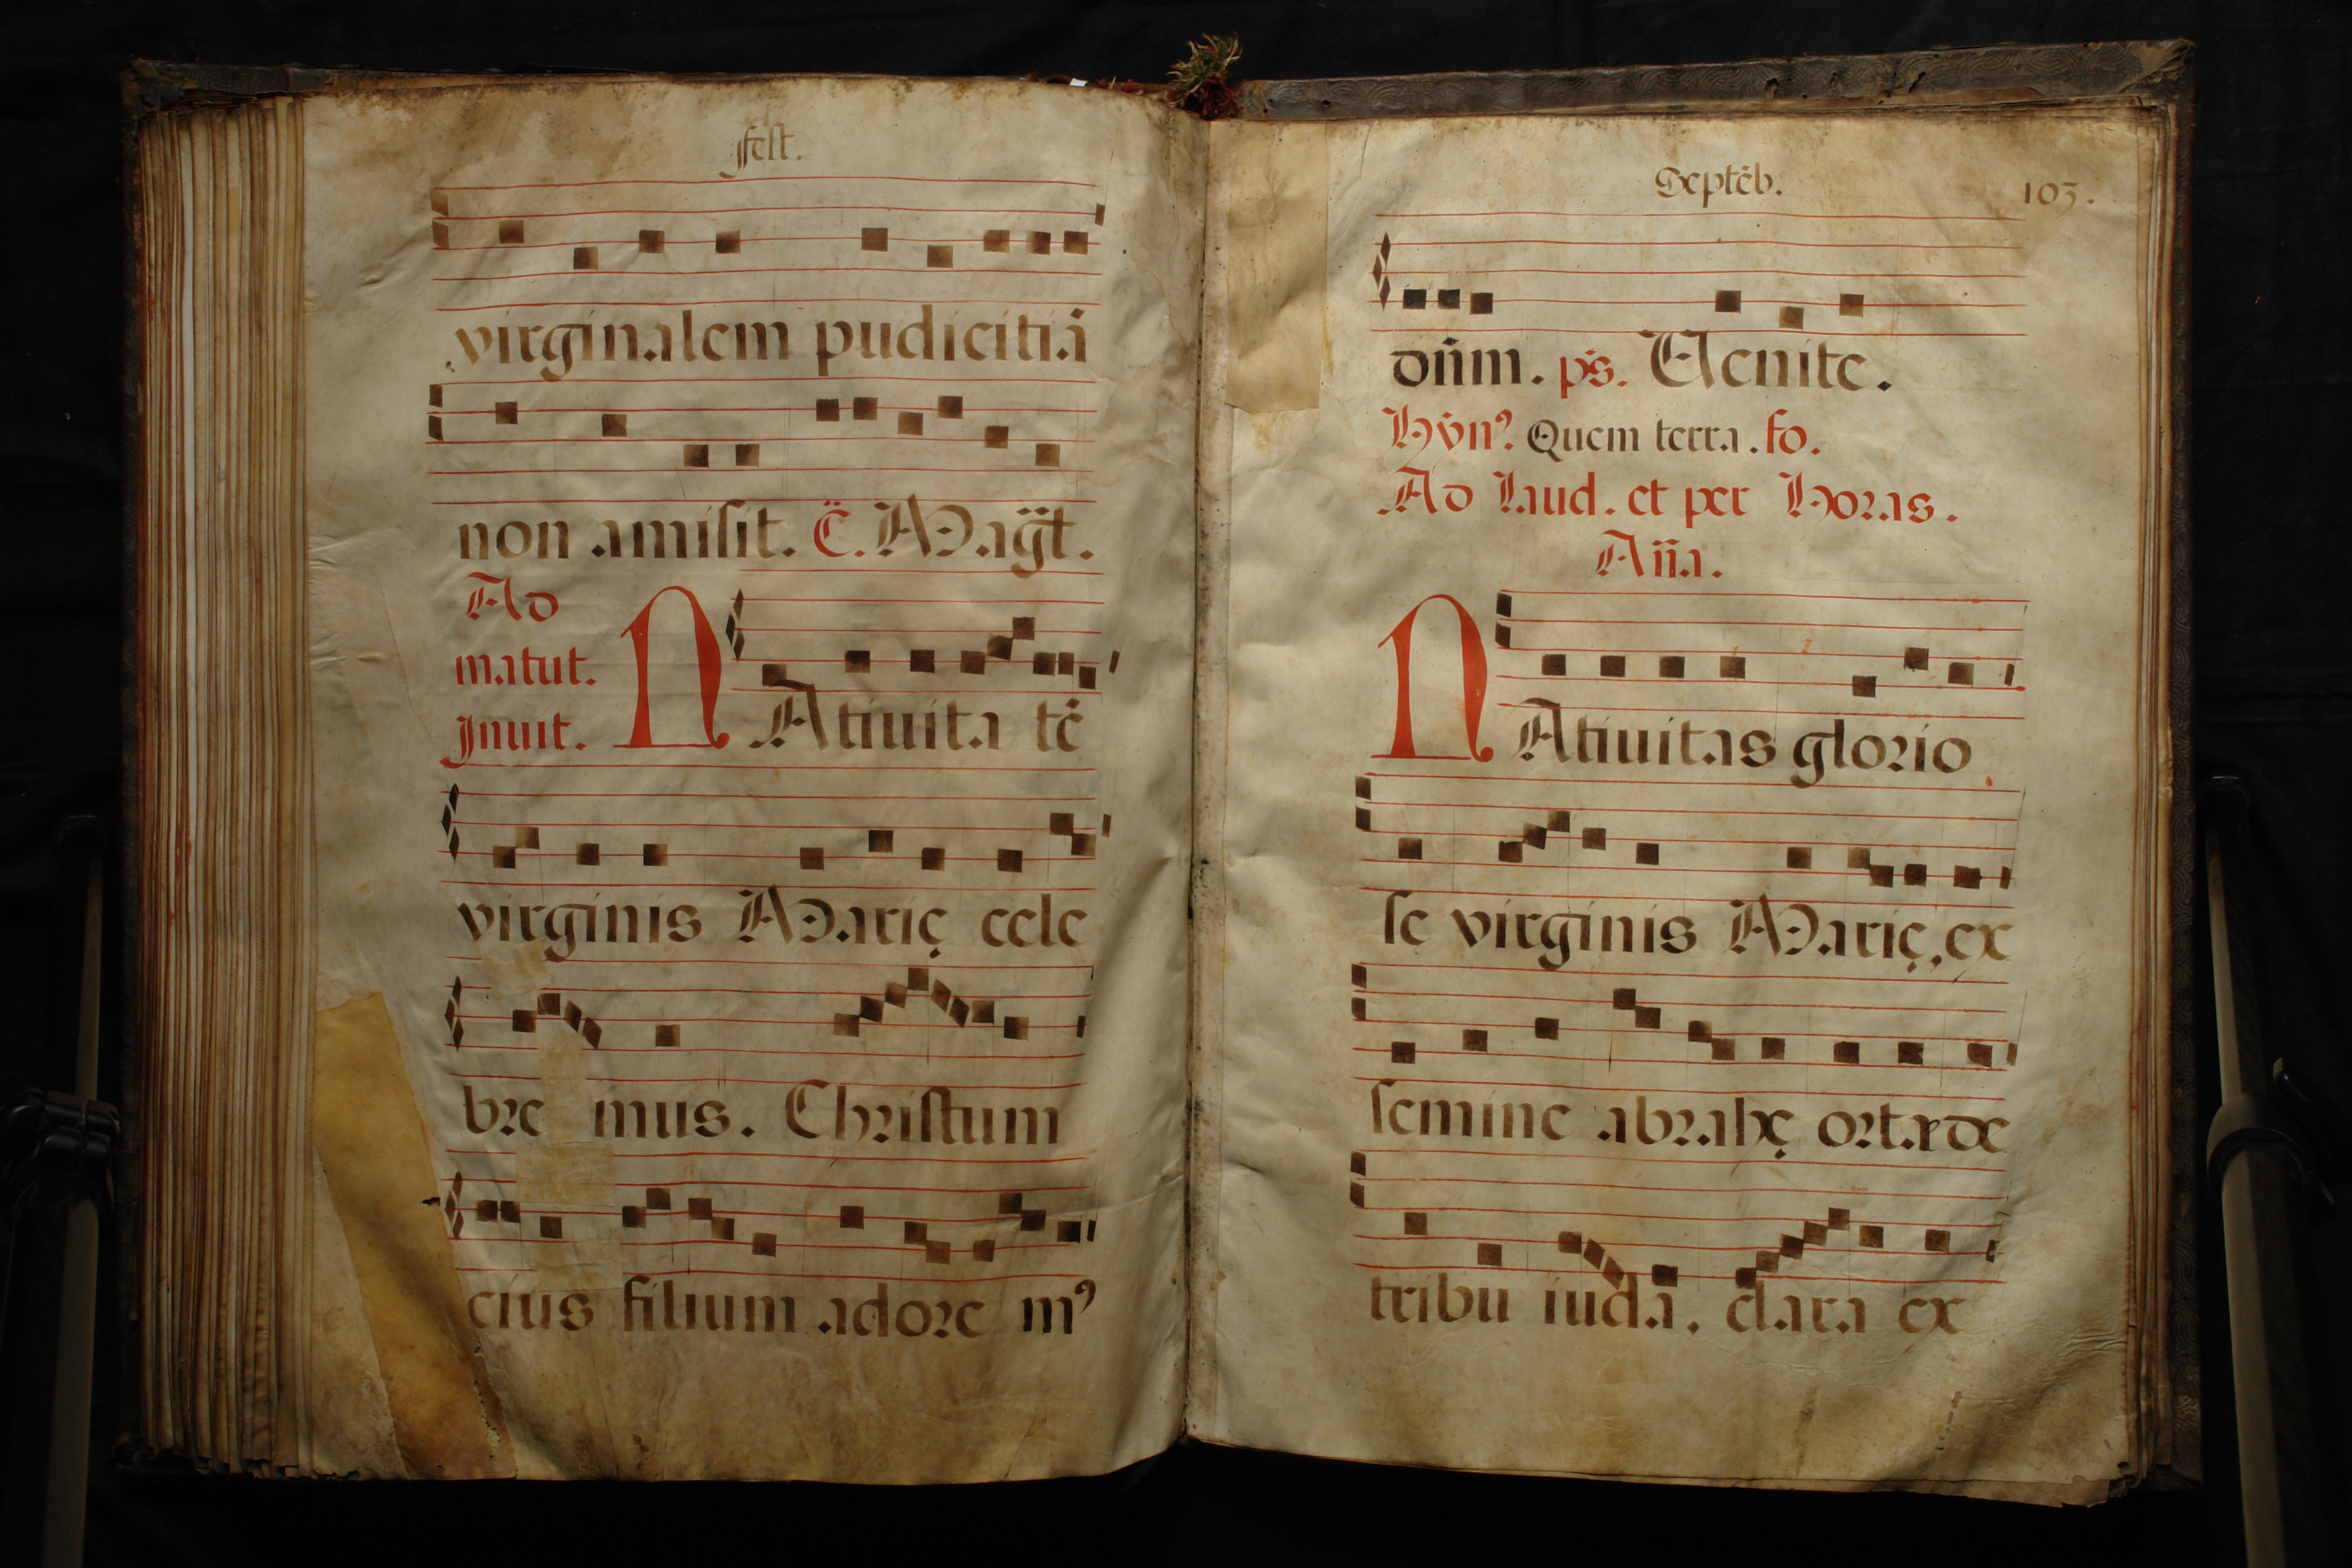 fest.
virginalem pudicitiā
non amisit. C̄. Magt̄.
Ad
matut.
Inuit.
NAtiuita tē
virginis Marię cele
bre mus. Christum
eius filium adore m⁹
Septēb. 103.
dn̄m. ps. Uenite.
Hẏn⁹. Quem terra. fo.
Ad Laud. et per Horas.
An̄a.
NAtiuitas glorio
se virginis Marię, ex
semine abrahę orta de
tribu iuda. clara ex